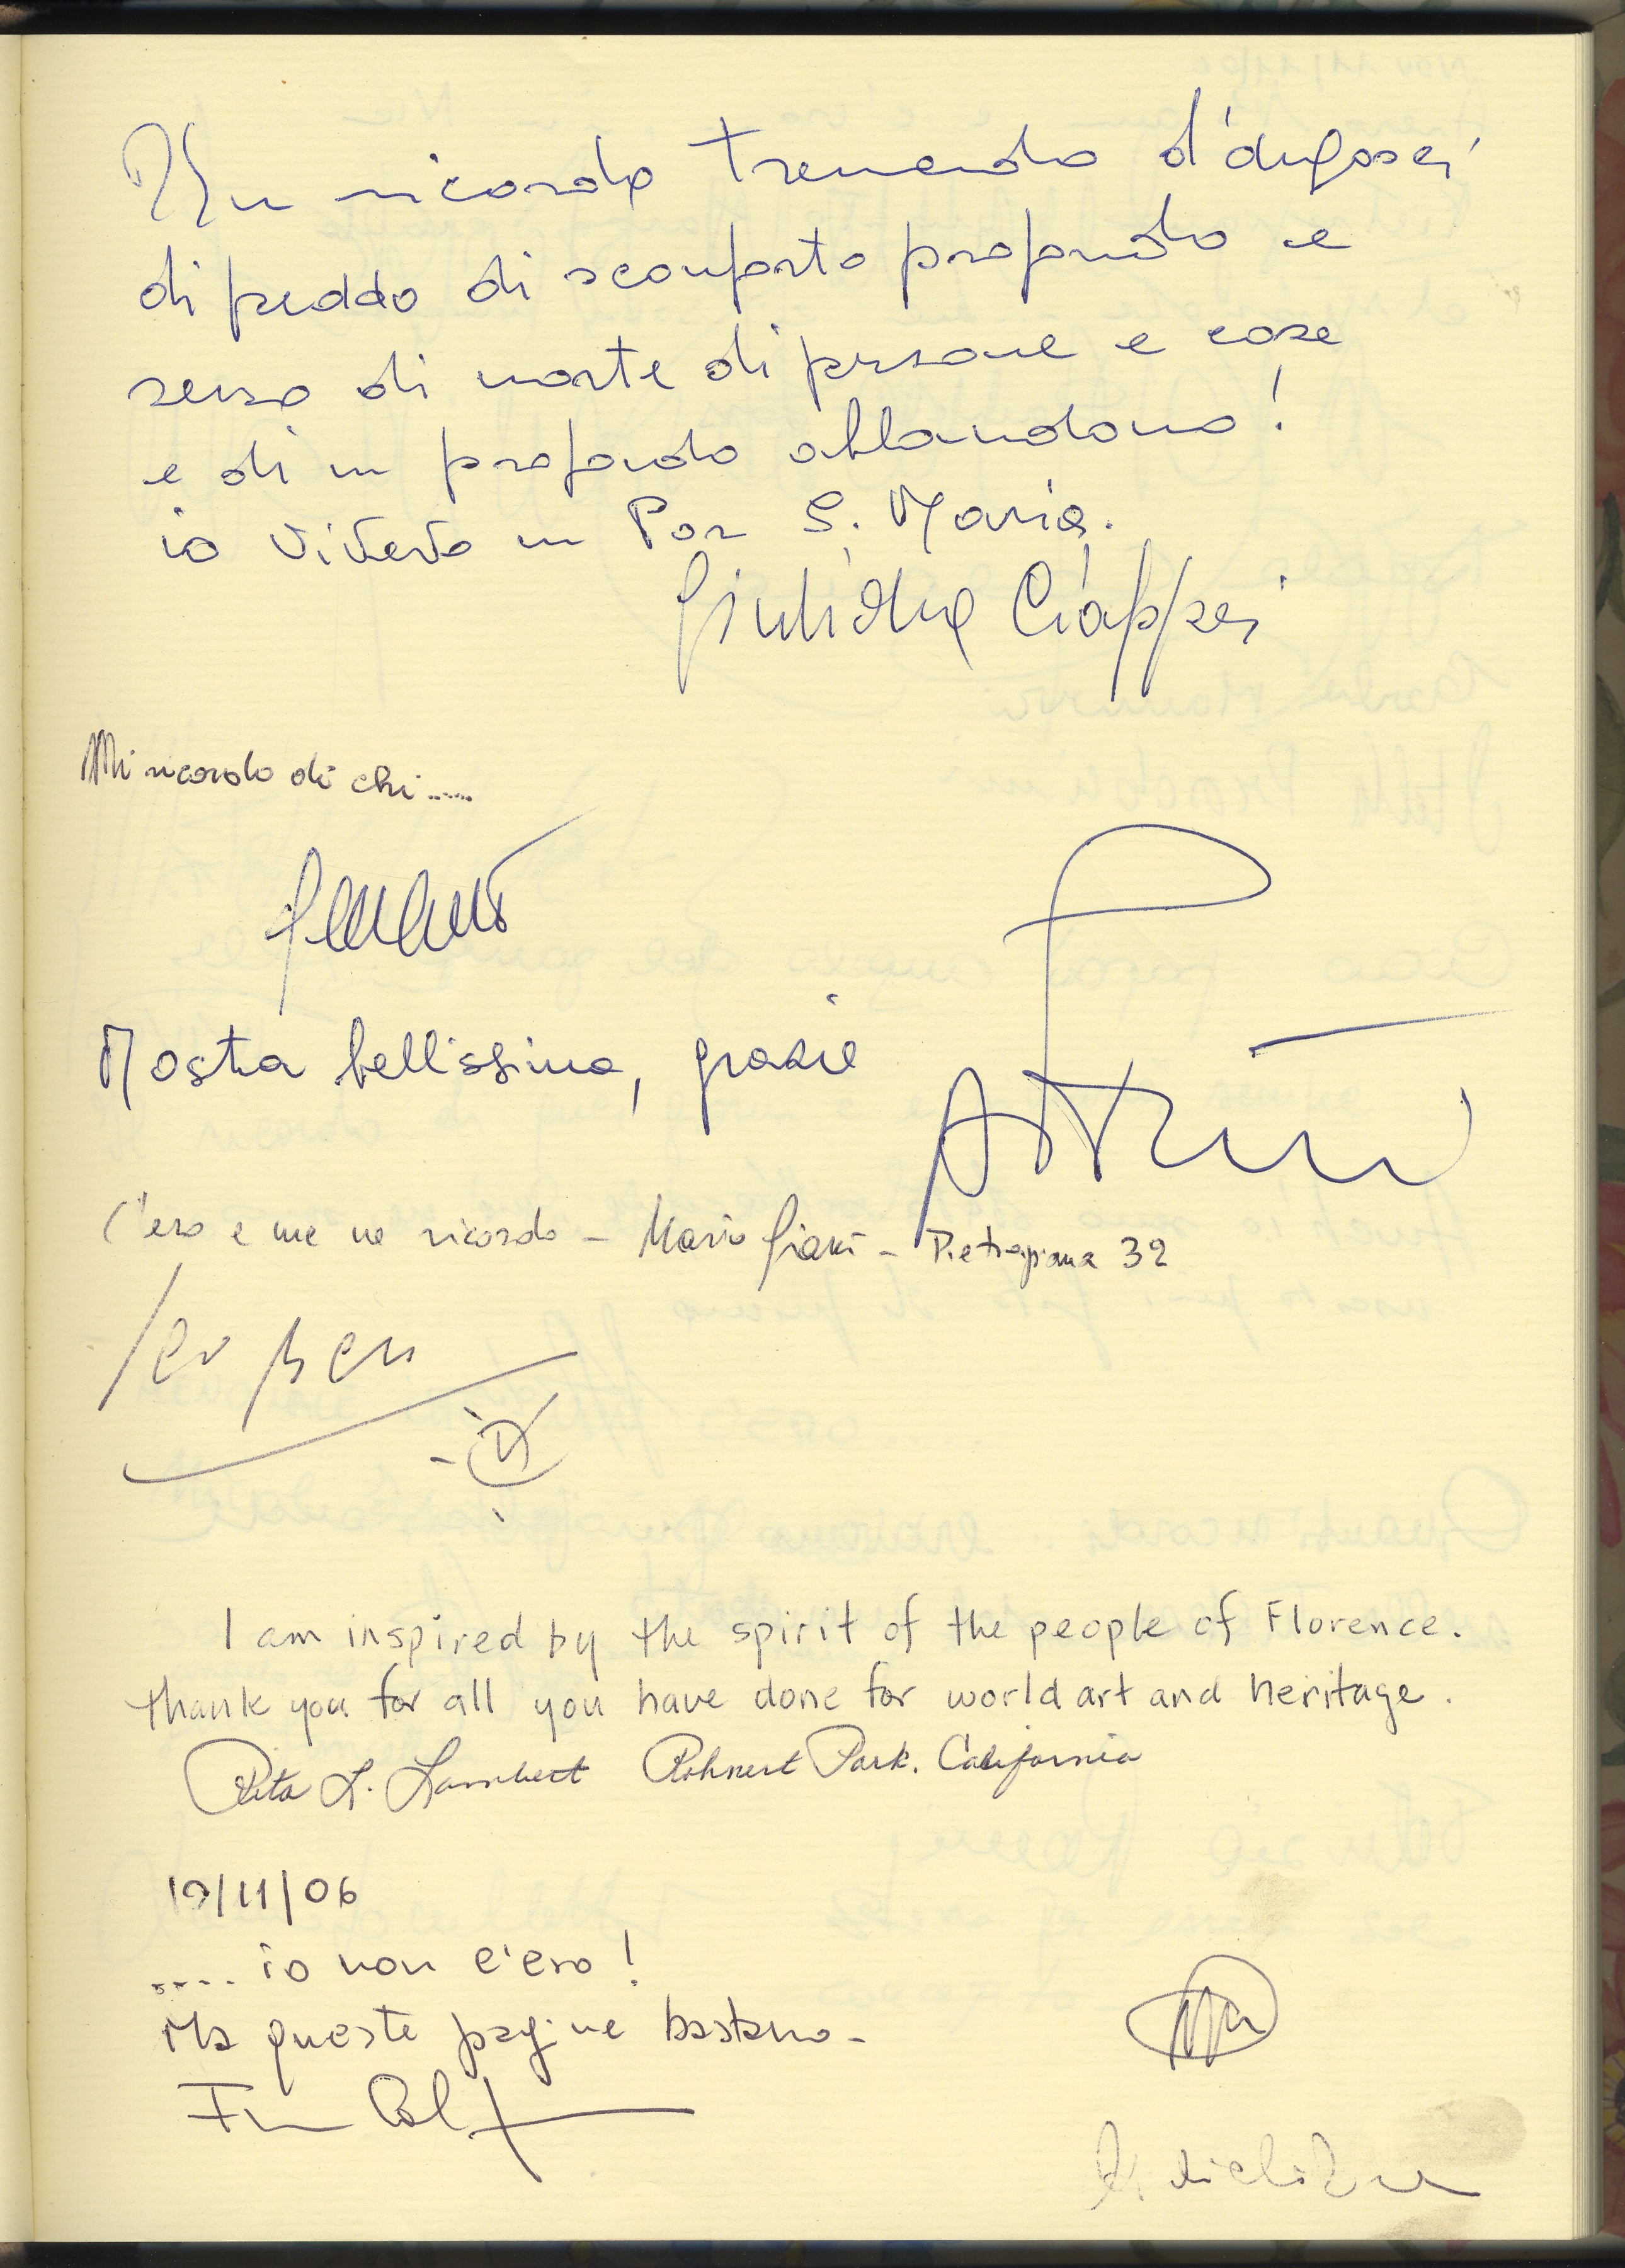 Un ricordo tremendo d'angosci
di freddo di sconforto profondo e
senso di morte di persone e cose
e di un profondo abbandono!
io vivevo in Por S. Maria.
Giuliana Ciappei
Mi ricordo di chi......
Mostra bellissima, grazie
C'ero e me ne ricordo - Mario - Pietrapiana 32
I am inspired by the spirit of the people of Florence.
Thank you for all you have done for world art and heritage.
Rita L. Lambert Rohnert Park. California
19/11/06
.... io non c'ero!
Ma queste pagine bastano -